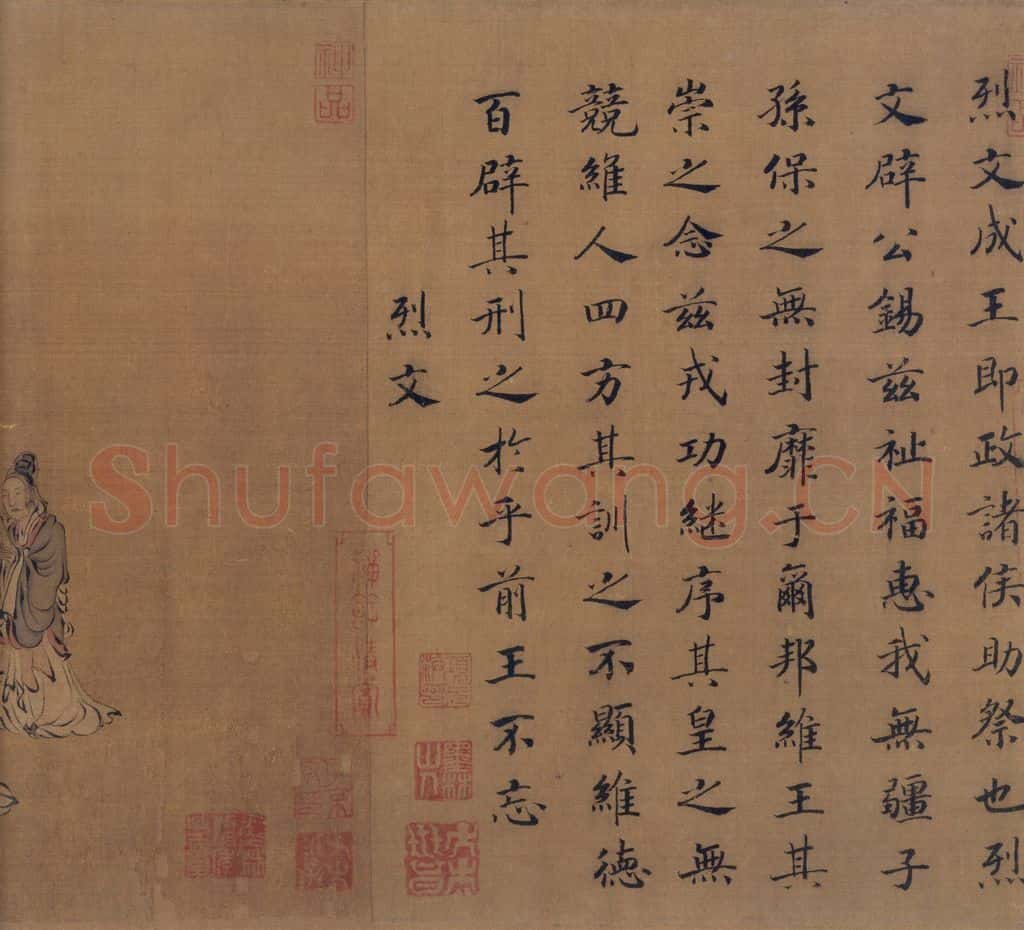 烈文成王即政諸侯助祭也烈
文辟公錫兹祉福惠我無疆子
孫保之無封靡于爾邦維王其
崇之念兹戎功継序其皇之無
競維人四方其訓之不顯維德
百辟其刑之於乎前王不忘
烈文
神品
Shufawang.CN